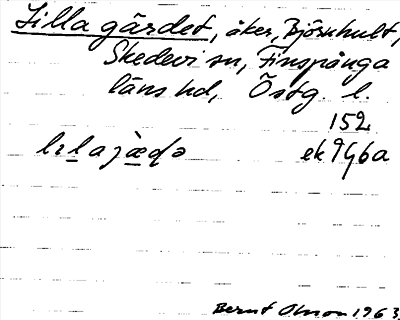 Lilla gärdet, åker, Björnhult,
Skedevi sn, Finspånga
läns hd, Östg. l.
152
lɪlajæ̀ɖə ek 9Gb6a
Bernt Olsson 1963